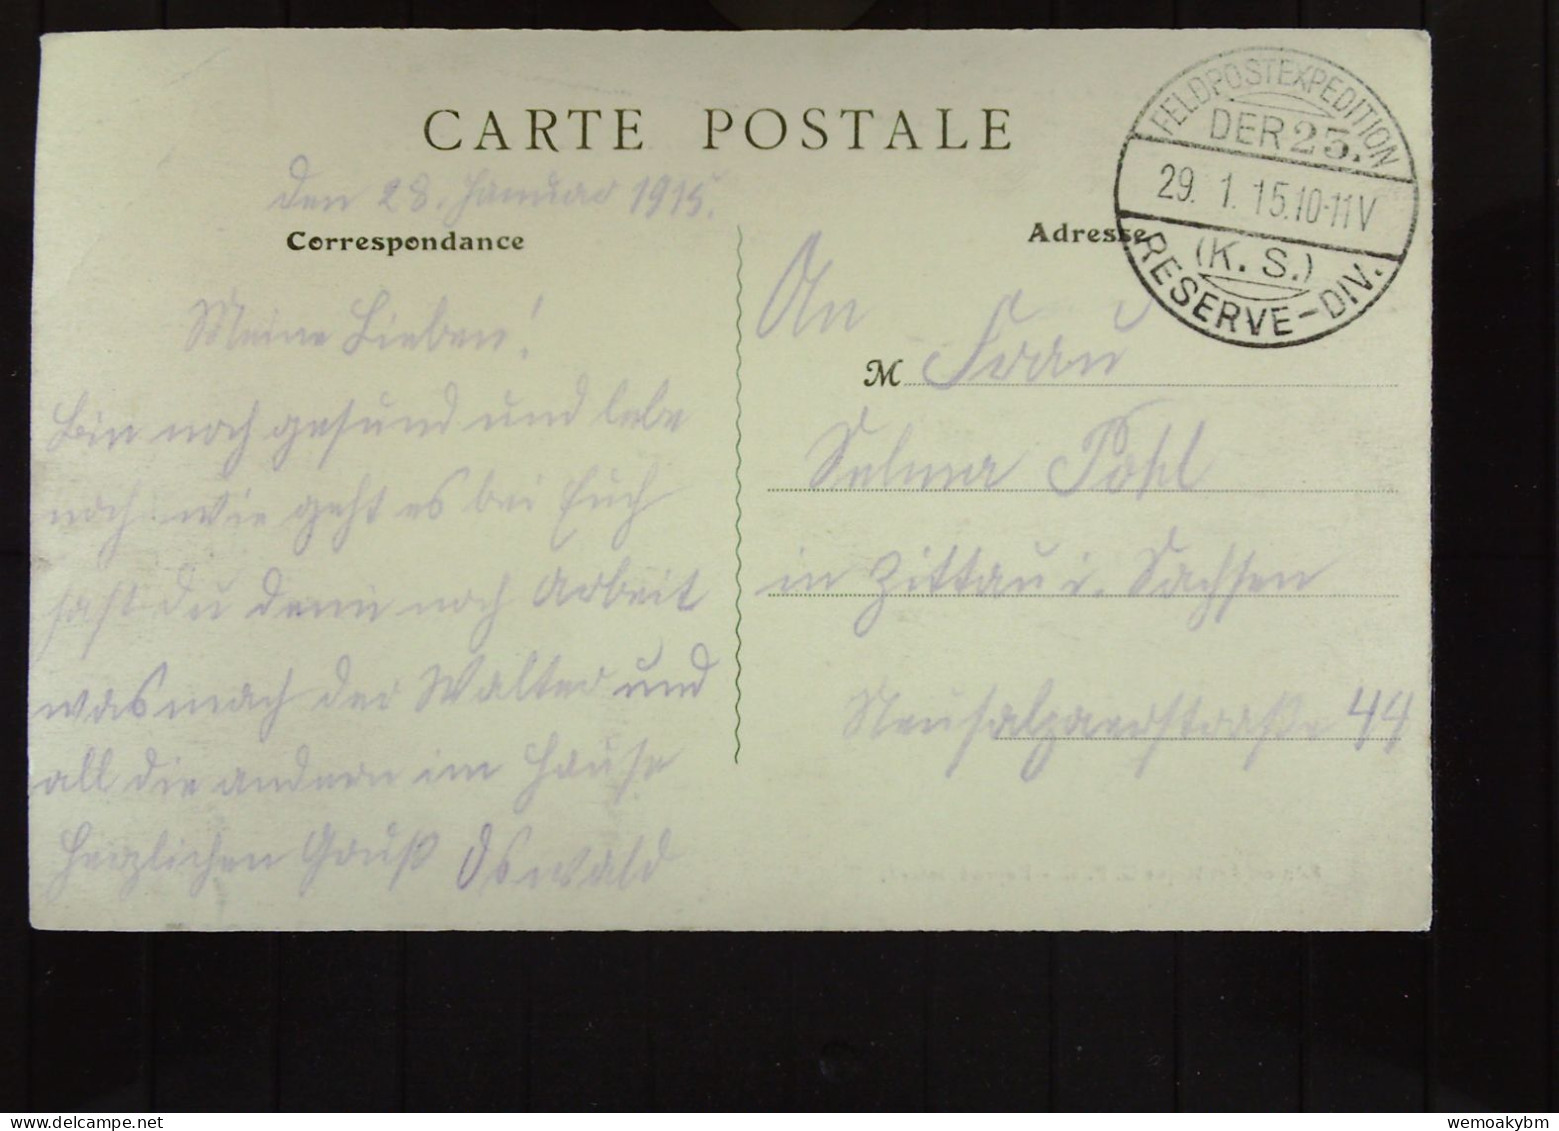 CARTE POSTALE
FELDPOSTEXPEDITION
DER 25.
29. 1. 15. 10-11V
(K. S.)
RESERVE-DIV.
den 28. Januar 1915.
Correspondance
Meine Lieben!
bin noch gesund und lebe
noch wie geht es bei Euch
hast du denn noch Arbeit
was mach der Walter und
all die andern im Hause
Herzlichen Gruß Oswald
Adresse
An
M Frau
Selma Pohl
in Zittau i. Sachsen
Neusalzaerstraße 44
wemoakybm
www.delcampe.net